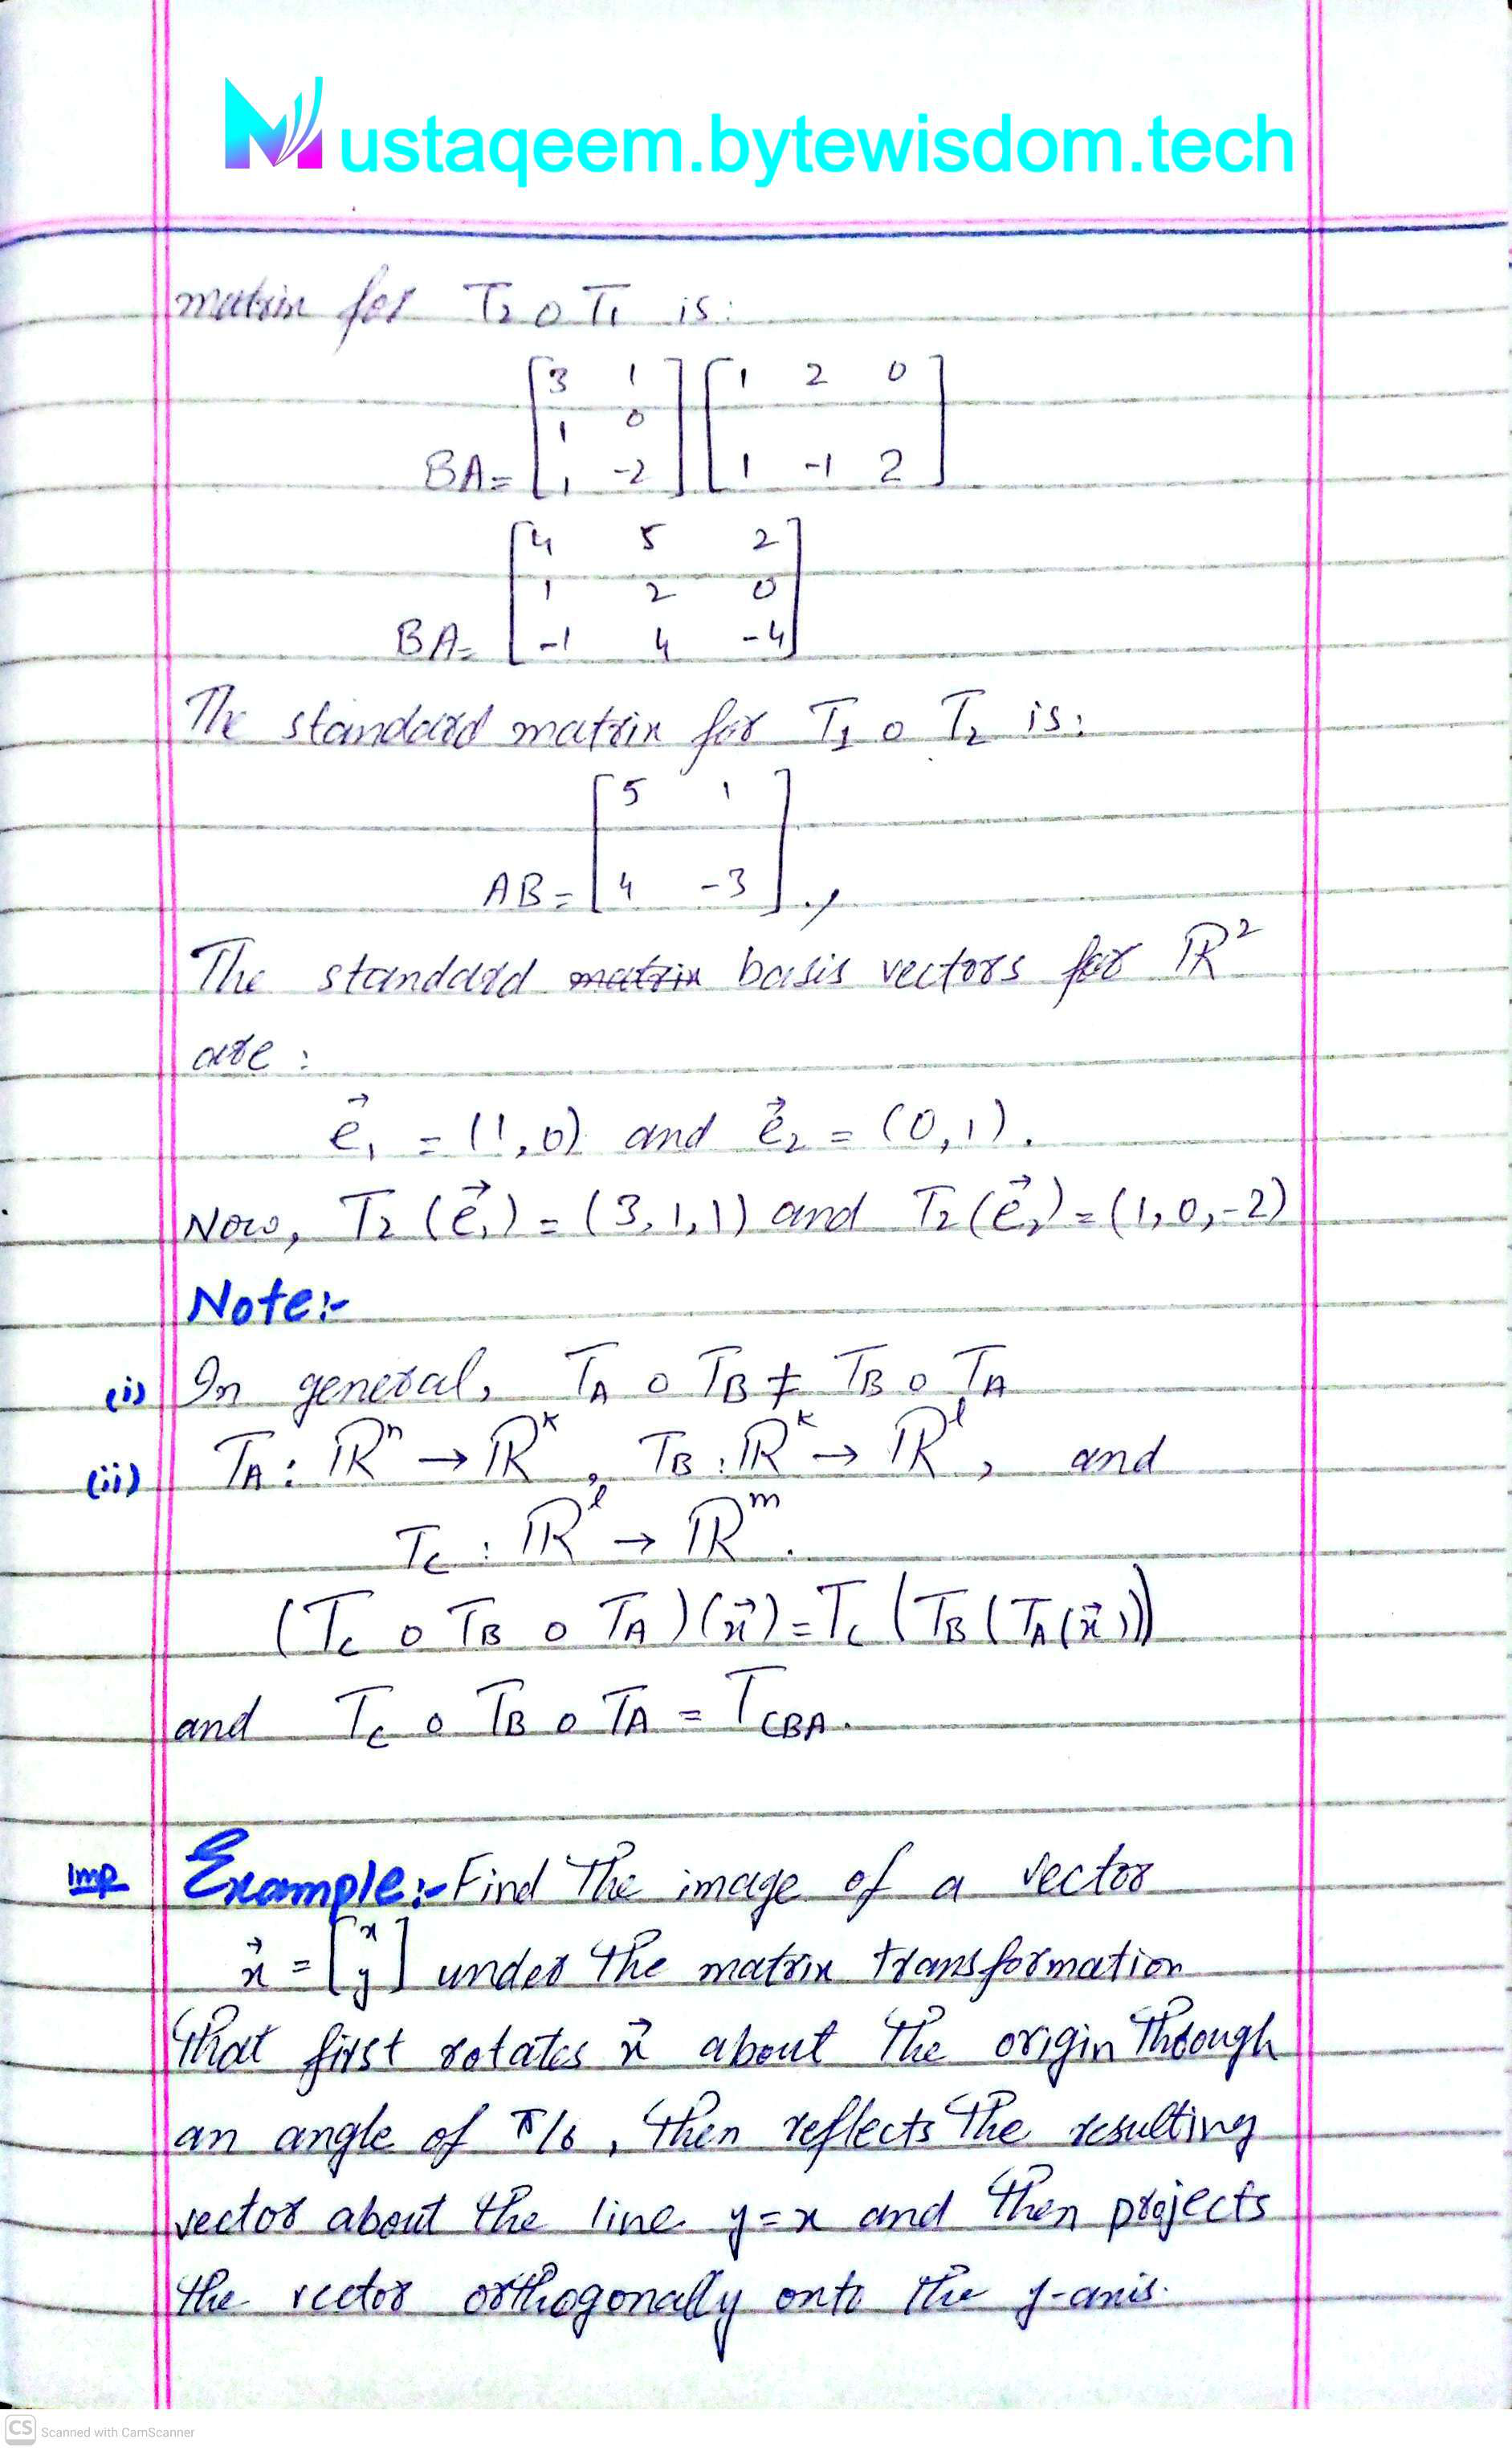 Mustaqeem.bytewisdom.tech
matrix for T₂ o T₁ is:
BA = [3 1; 1 0; 1 -2] [1 2 0; 1 -1 2]
BA = [4 5 2; 1 2 0; -1 4 -4]
The standard matrix for T₁ o T₂ is:
AB = [5 1; 4 -3].
The standard matrix basis vectors for ℝ²
are :
e⃗₁ = (1,0) and e⃗₂ = (0,1).
Now, T₂(e⃗₁) = (3,1,1) and T₂(e⃗₂) = (1,0,-2)
Note:-
(i) In general, T_A o T_B ≠ T_B o T_A
(ii) T_A : ℝⁿ → ℝᵏ, T_B : ℝᵏ → ℝˡ, and
T_C : ℝˡ → ℝᵐ.
(T_C o T_B o T_A)(x⃗) = T_C(T_B(T_A(x⃗)))
and T_C o T_B o T_A = T_CBA.
Imp Example:- Find The image of a vector
x⃗ = [x; y] under the matrix transformation
that first rotates x⃗ about the origin through
an angle of π/6, then reflects the resulting
vector about the line y=x and then projects
the vector orthogonally onto the y-axis.
CS Scanned with CamScanner